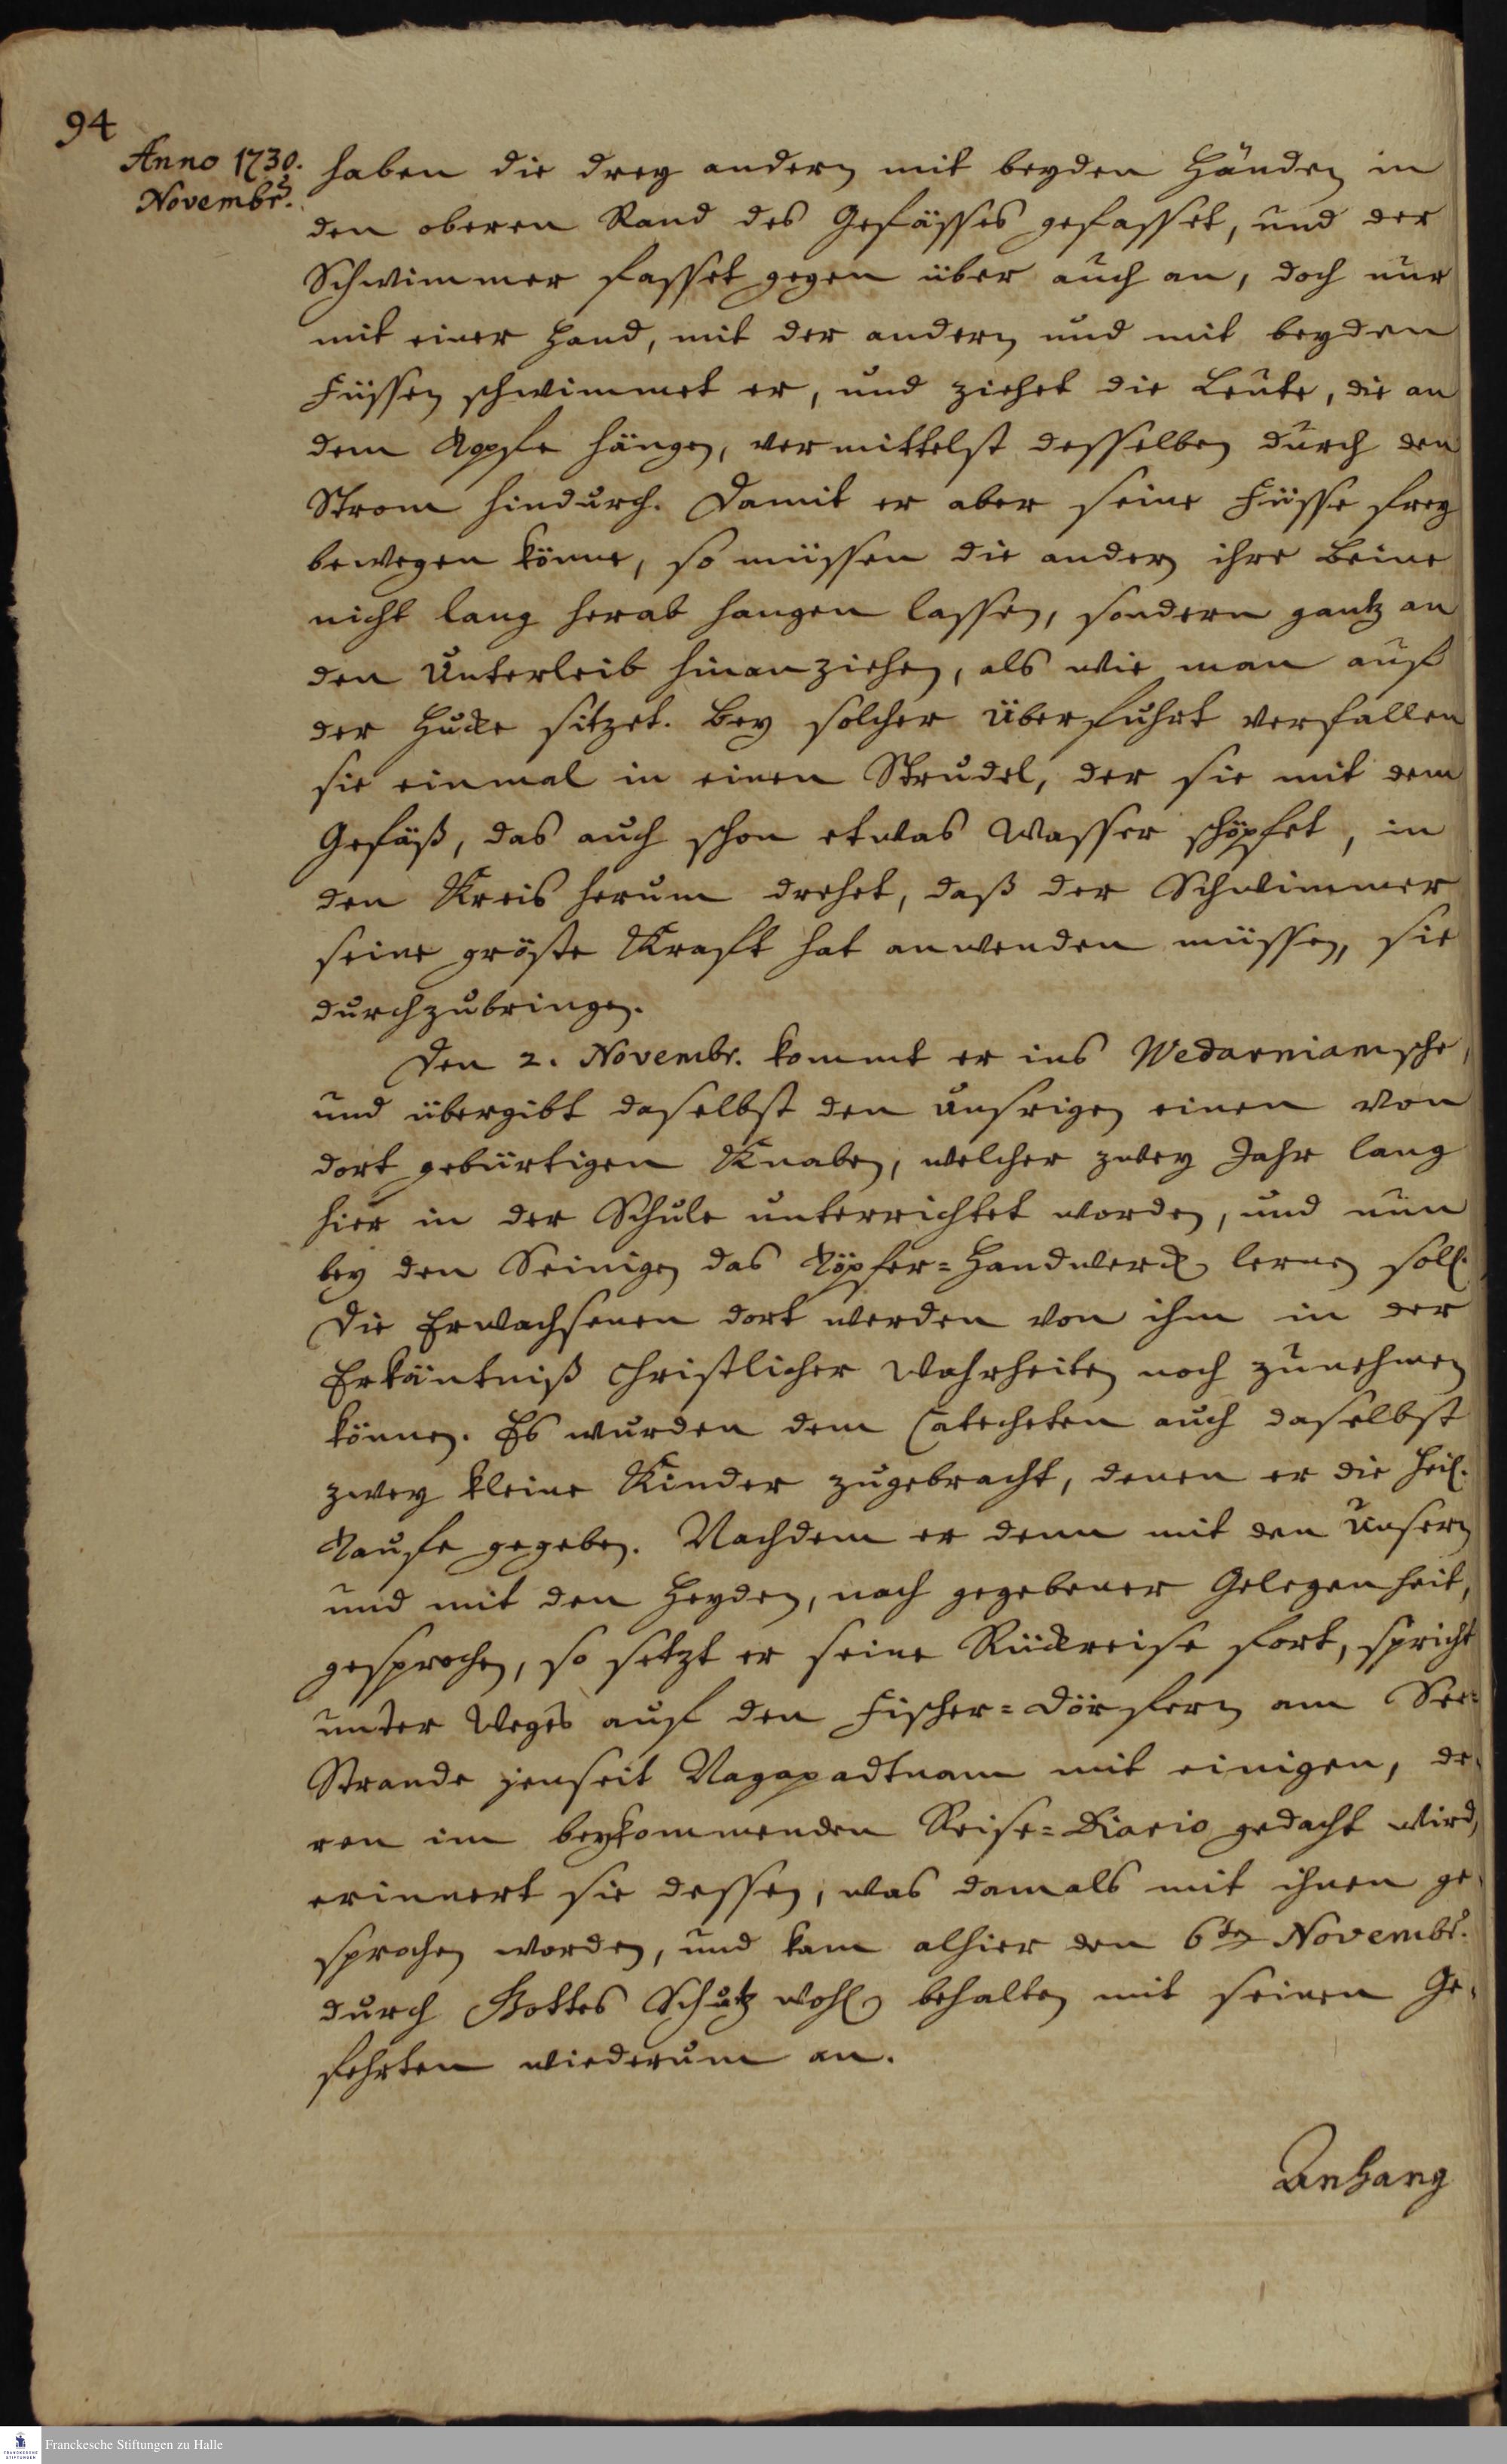 94
Anno 1730.
Novembr.
haben die drey andern mit beyden Händen in
den oberen Rand des Gefässes gefasset, und der
Schwimmer fasset gegen über auch an, doch nur
mit einer Hand, mit der andern und mit beyden
Füssen schwimmet er, und ziehet die Leute, die an
dem Topfe hängen, vermittelst desselben durch den
Strom hindurch. Damit er aber seine Füsse frey
bewegen könne, so müssen die andern ihre Beine
nicht lang herab hangen lassen, sondern gantz an
den Unterleib hinanziehen, als wie man auf
der Hucke sitzet. Bey solcher Überfuhrt verfallen
sie einmal in einen Strudel, der sie mit dem
Gefäß, das auch schon etwas Wasser schöpfet, in
den Kreis herum drehet, daß der Schwimmer
seine gröste Krafft hat anwenden müssen, sie
durchzubringen.
Den 2. Novembr. kommt er ins Wedarniamsche,
und übergibt daselbst den unsrigen einen von
dort gebürtigen Knaben, welcher zwey Jahr lang
hier in der Schule unterrichtet worden, und nun
bey den Seinigen das Töpfer=Handwerck lernen soll.
Die Erwachsenen dort werden von ihm in der
Erkäntniß christlicher Wahrheiten noch zunehmen
können. Es wurden dem Catecheten auch daselbst
zwey kleine Kinder zugebracht, denen er die heil.
Taufe gegeben. Nachdem er denn mit den Unsern
und mit den Heyden, nach gegebener Gelegenheit,
gesprochen, so setzt er seine Rückreise fort, spricht
unter Weges auf den Fischer=Dörfern am See=
Strande jenseit Nagapadtnam mit einigen, de-
ren im beykommenden Reise=Diario gedacht wird,
erinnert sie dessen, was damals mit ihnen ge-
sprochen worden, und kam alhier den 6ten Novembr.
durch Gottes Schutz wohl behalten mit seinen Ge-
fehrten wiederum an.
Anhang
Franckesche Stiftungen zu Halle